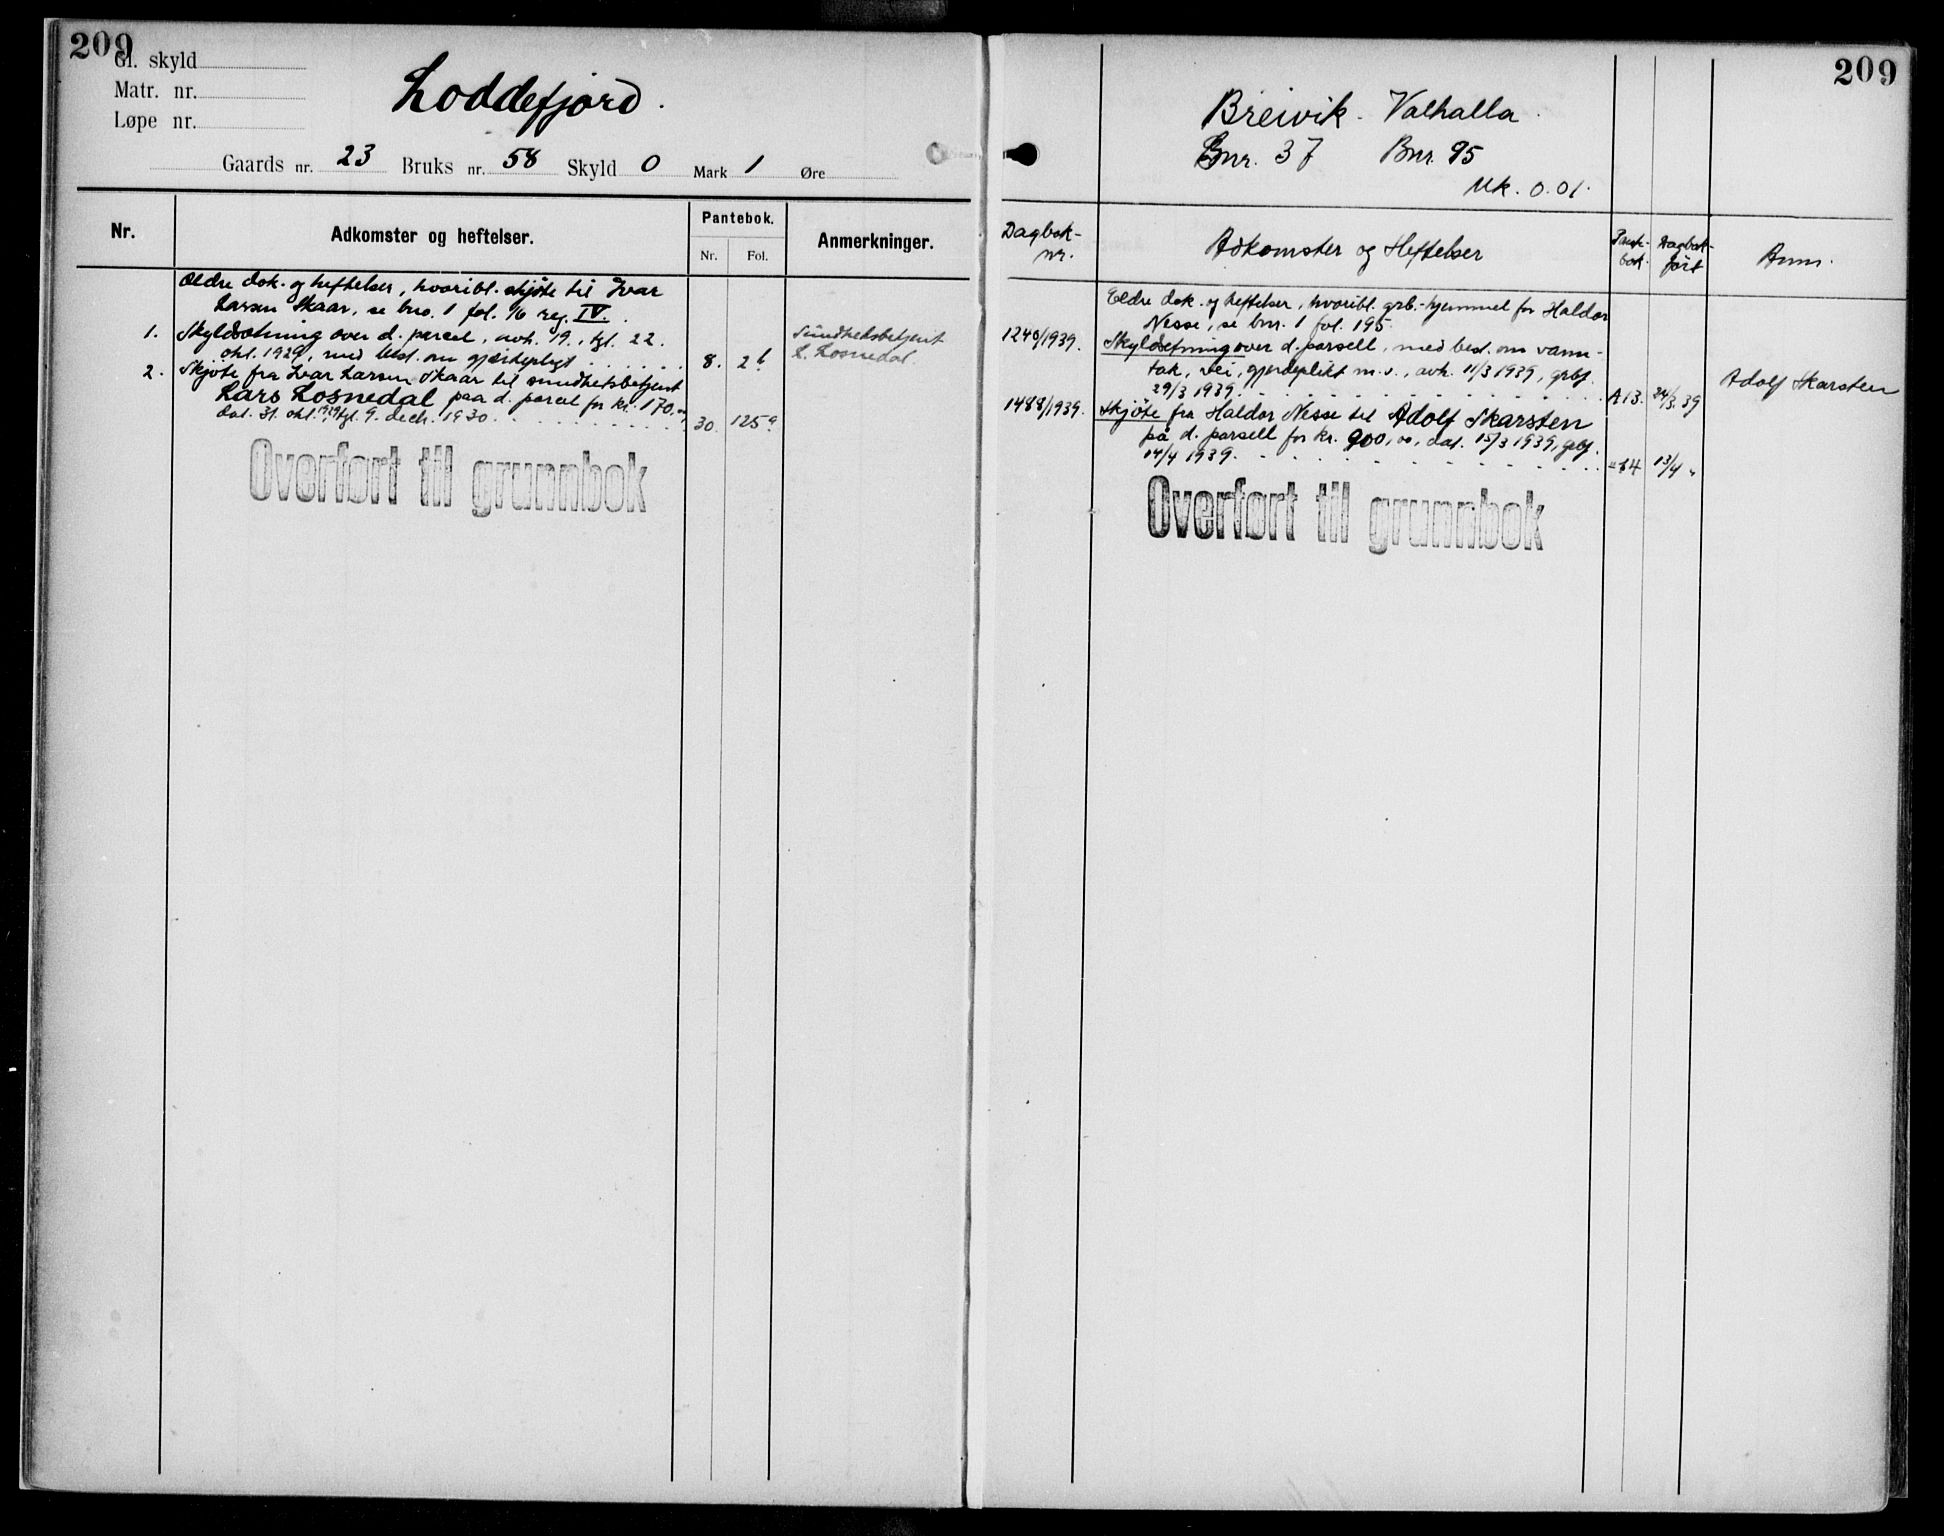 209
Gl. skyld
Matr. nr.
Løpe nr.
Loddefjord.
Gaards nr. 23 Bruks nr. 58 Skyld 0 Mark 1 Øre
Nr.
Adkomster og heftelser.
Pantebok.
Nr. Fol.
Anmerkninger.
Ældre dok. og heftelser, hvoribl. skjøte til Ivar
Larsen Skaar, se bno. 1 fol. 16 reg. IV.
1. Skyldsætning over d. parcel, avh. 19., tgl. 22.
okt. 1929, med best. om gjærdepligt 8. 2b
Sundhetsbetjent
L. Losnedal
2. Skjøte fra Ivar Larsen Skaar til sundhetsbetjent
Lars Losnedal paa d. parcel for kr. 170.00
dat. 31. okt. 1929 tgl. 9. decbr. 1930. 30. 125a
Overført til grunnbok
209
Breivik - Valhalla.
Gnr. 37 Bnr. 95
Mk. 0.01.
Dagbok-
nr.
Adkomster og Heftelser
Pante-
bok.
Dagbok-
ført
Anm.
Eldre dok. og heftelser, hvoribl. grb.-hjemmel for Haldor
Nesse, se bnr. 1 fol. 195.
1240/1939. Skyldsetning over d. parsell, med best. om vann-
tak, vei, gjerdeplikt m.v., avh. 11/3 1939, grbf.
29/3 1939. A 13. 24/3. 39
Adolf Skarsten
1488/1939. Skjøte fra Haldor Nesse til Adolf Skarsten
på d. parsell for kr. 900,00, dat. 15/3 1939, grbf.
14/4 1939. " 14 13/4 "
Overført til grunnbok